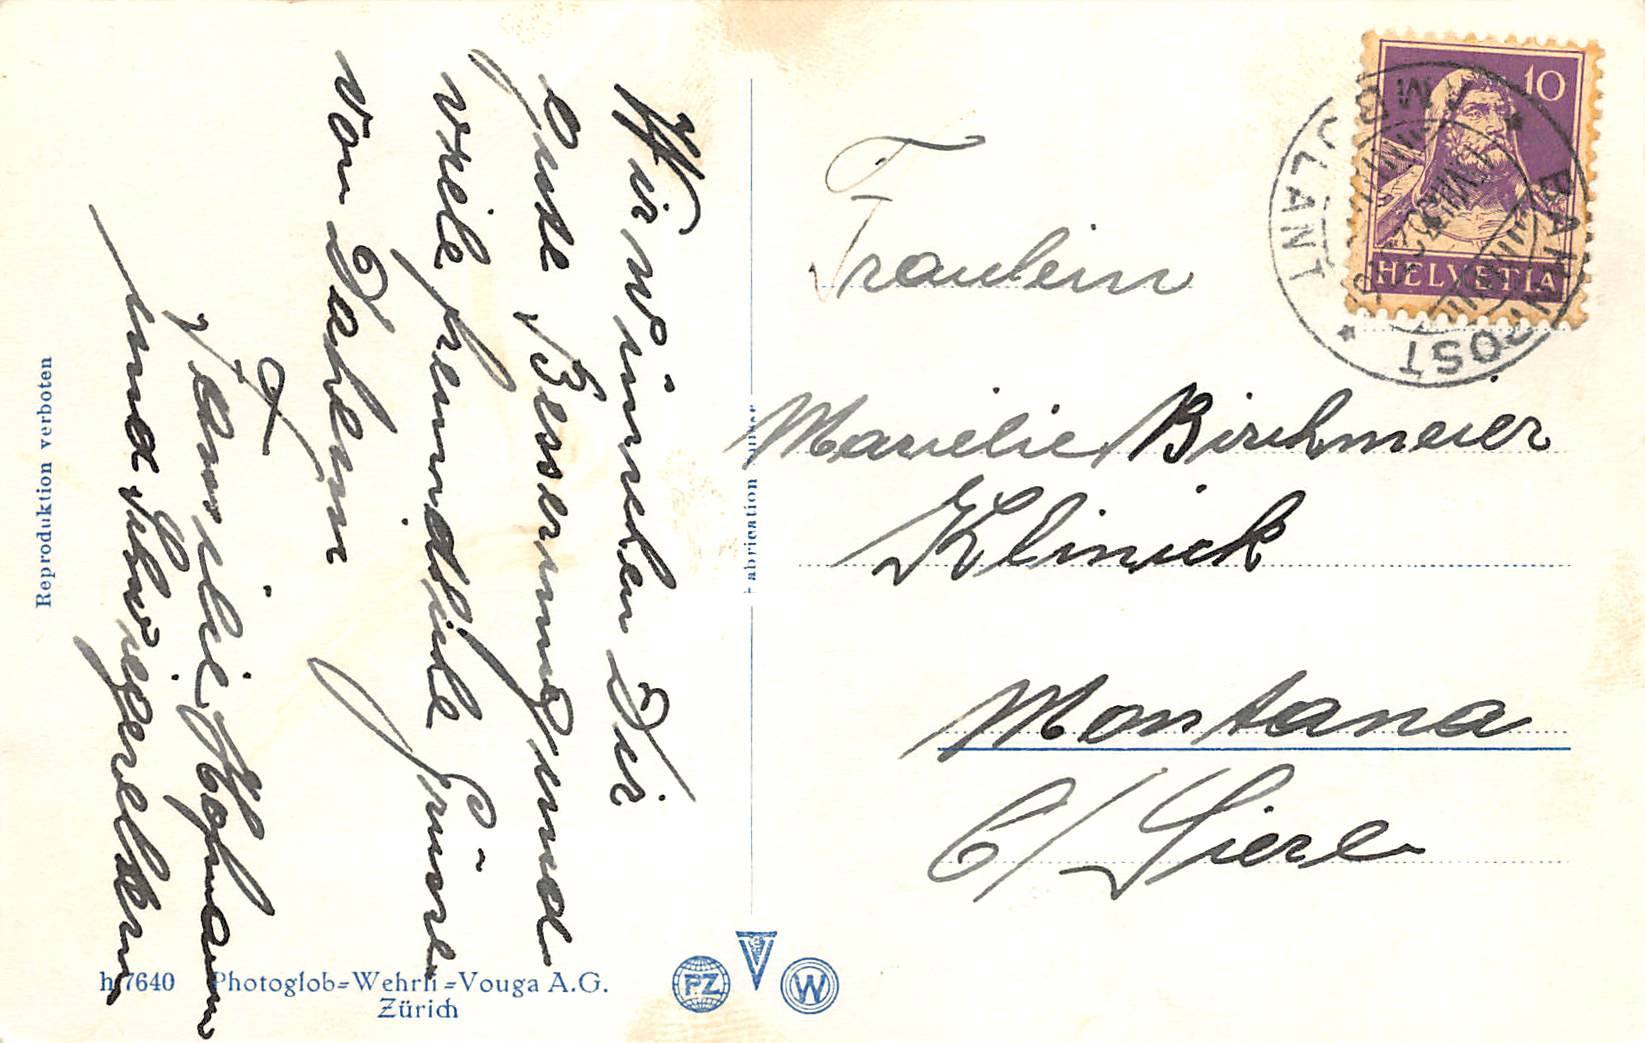 Wir wünschen Dir
Gute Besserung und
viele freundliche Grüsse
von Daheim
Familie Hofmann
und Schwiegereltern
Fräulein
Marielie Birchmeier
Klinick
Montana
S/ Siere
10
HELVETIA
AMBULANT
BAHNPOST
Reproduktion verboten
Fabrication Suisse
h 7640 Photoglob=Wehrli=Vouga A.G.
Zürich
PZ
V
W